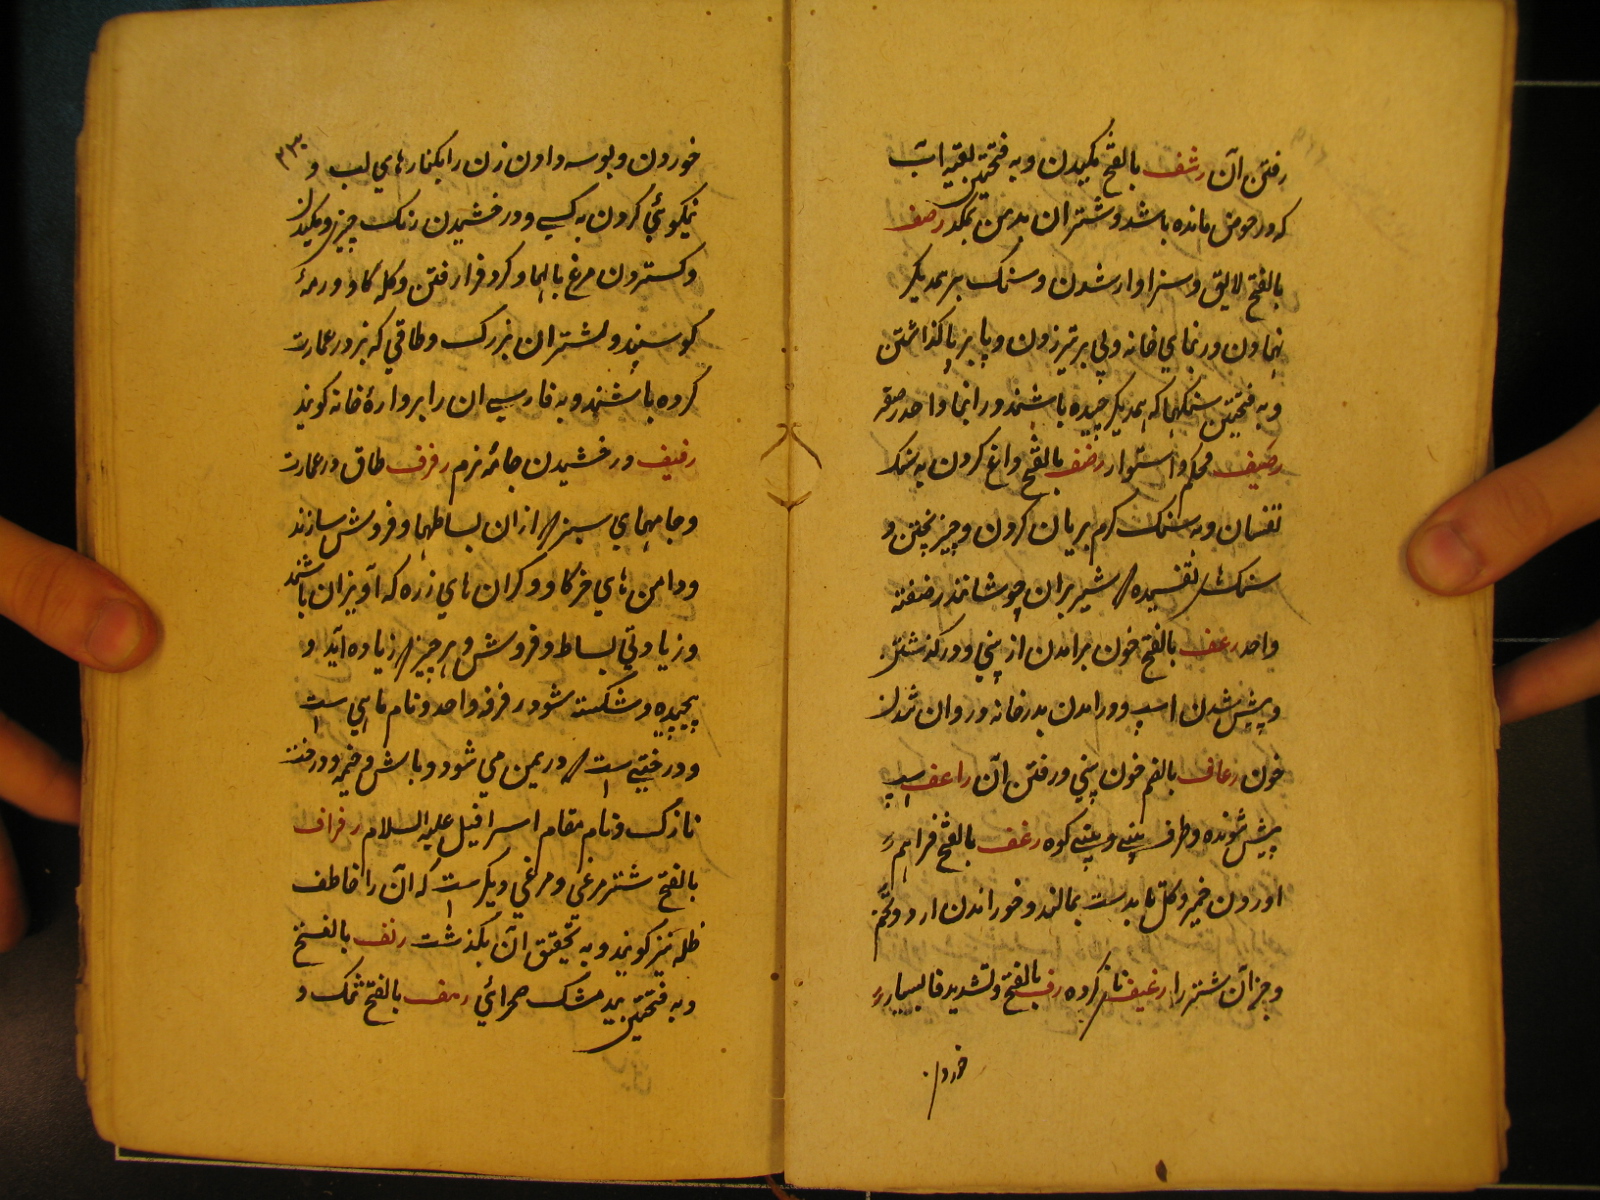 رفتن آن رشف بالفتح مکیدن و به فتحتین بقیه آب
که در حوض مانده باشد و شتران بدهن بمکد رصف
بالفتح لایق و سزاوار شدن و سنک بر همدیگر
نهادن در بنای خانه و پی بر تیر زدن و پا بر پا گذاشتن
و به فتحتین سنکها که بهمدیگر چیده باشند در انها واحد رصفه
رصیف محکم و استوار رضف بالفتح داغ کردن به سنک
تفسان و به سنک گرم بریان کردن و چیز پختن و
سنک های تفسیده که شیر بران جوشانند رضفته
واحد رعف بالفتح خون برامدن از بینی و درگذشتن
و پیش شدن اسپ و درامدن بدرخانه و روان شدن
خون رعاف بالضم خون بینی و رفتن آن راعف اسپ
پیش شونده و طرف بینی و بینی کوه رغف بالفتح فراهم
اوردن خمیر و کل تا بدست بمالند و خوراندن ارد و تخم
و جز آن شتر را رغیف نان کرده رف بالفتح و تشدید فا بسیار
خوردن
۲۳۰
خوردن و بوسه دادن زن را بکنارهای لب و
نیکوئی کردن به کسی و درخشیدن رنک چیز و مکیدن
و کستردن مرغ بالها و کرد فرا رفتن و کله کاو و رمه
کوسپند و شتران بزرک و طاقی که بر در عمارت
کرده باشند و به فارسی ان را بروارهٔ خانه کویند
رفیف درخشیدن جامه نرم رفرف طاق در عمارت
و جامهای سبز که از ان بساطها و فروش سازند
و دامن های خرکاه و کران های زره که آویزان باشند
و زیادتی بساط و فروش و هر چیز که زیاده آید و
پیچیده و شکسته شود رفرفه واحد و نام ماهی ست
و درختی ست که در یمن می شود و بالش و خیمه و درخت
نازک و نام مقام اسرافیل علیه السلام رفراف
بالفتح شترمرغی و مرغی دیکر ست که آن را خاطف
ظله نیز کویند و به تحقیق آن بکذشت رنف بالفتح
و به فتحتین بید مشک صحرائی رهف بالفتح تنک و